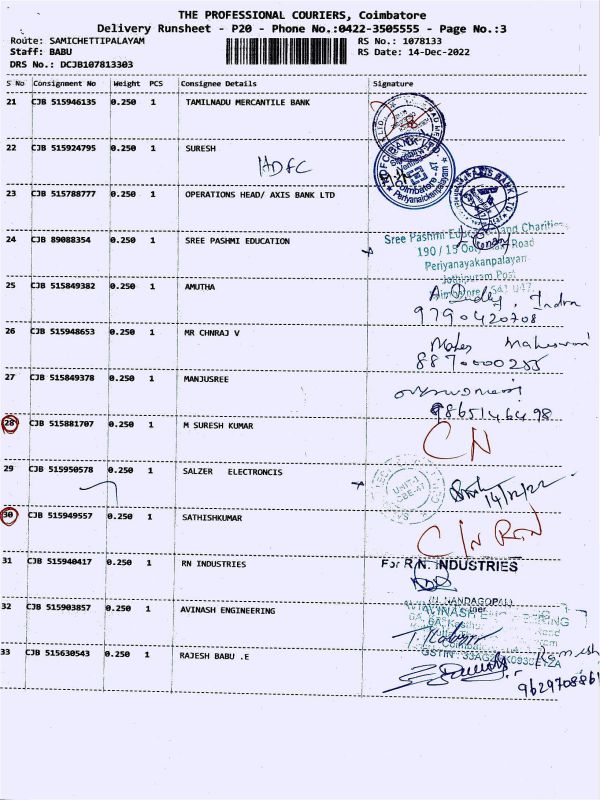 THE PROFESSIONAL COURIERS, Coimbatore
Delivery Runsheet - P20 - Phone No.:0422-3505555 - Page No.:3
Route: SAMICHETTIPALAYAM RS No.: 1078133
Staff: BABU RS Date: 14-Dec-2022
DRS No.: DCJB107813303
S No Consignment No Weight PCS Consignee Details Signature
21 CJB 515946135 0.250 1 TAMILNADU MERCANTILE BANK
22 CJB 515924795 0.250 1 SURESH
HDFC
Coimbatore - 47
Periyanaickenpalayam
23 CJB 515788777 0.250 1 OPERATIONS HEAD/ AXIS BANK LTD
AXIS BANK LTD
24 CJB 89088354 0.250 1 SREE PASHMI EDUCATION
Sree Pashmi and Charities
190 / 15 Road
Periyanayakanpalayam
Jothipuram Post
25 CJB 515849382 0.250 1 AMUTHA
Indra
9790420708
26 CJB 515948653 0.250 1 MR CHNRAJ V
Maheswari
8870000255
27 CJB 515849378 0.250 1 MANJUSREE
9865146498
28 CJB 515881707 0.250 1 M SURESH KUMAR
CN
29 CJB 515950578 0.250 1 SALZER ELECTRONCIS
UNIT-1
CBE-47
14/12/22
30 CJB 515949557 0.250 1 SATHISHKUMAR
31 CJB 515940417 0.250 1 RN INDUSTRIES
For R.N. INDUSTRIES
NANDAGOPAL
32 CJB 515903857 0.250 1 AVINASH ENGINEERING
AVINASH
33 CJB 515630543 0.250 1 RAJESH BABU .E
Ramesh
9629708861